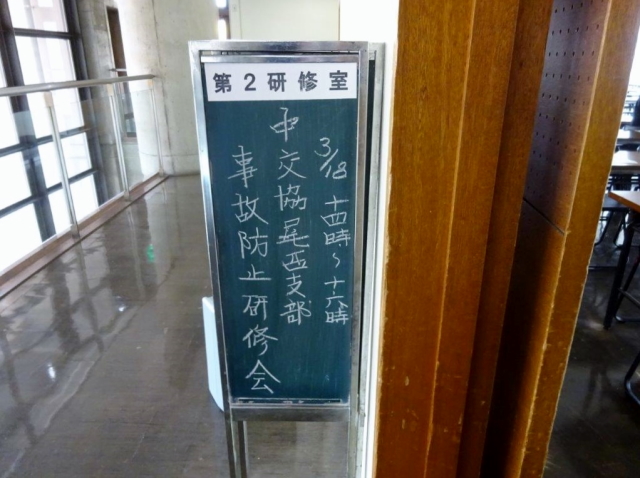 第2研修室
3/18 十四時~十六時
中交協尾西支部
事故防止研修会